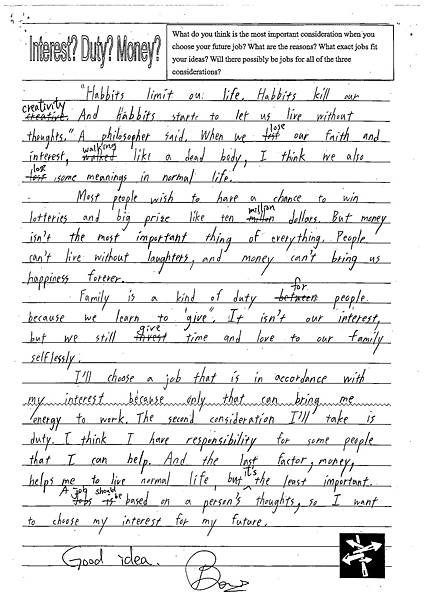 Interest? Duty? Money?
What do you think is the most important consideration when you
choose your future job? What are the reasons? What exact jobs fit
your ideas? Will there possibly be jobs for all of the three
considerations?
"Habbits limit our life. Habbits kill our
creativity
creative. And Habbits starts to let us live without
thoughts." A philosopher said. When we lost lose our faith and
interest, walked walking like a dead body, I think we also
lost lose some meanings in normal life.
Most people wish to have a chance to win
lotteries and big prize like ten million dollars. But money
isn't the most important thing of everything. People
can't live without laughters, and money can't bring us
happiness forever.
Family is a kind of duty between for people
because we learn to "give". It isn't our interest,
but we still give time and love to our family
selflessly.
I'll choose a job that is in accordance with
my interest because only that can bring me
energy to work. The second consideration I'll take is
duty. I think I have responsibility for some people
that I can help. And the last factor, money,
helps me to live normal life, but it's the least important.
A job should be based on a person's thoughts, so I want
to choose my interest for my future.
Good idea.